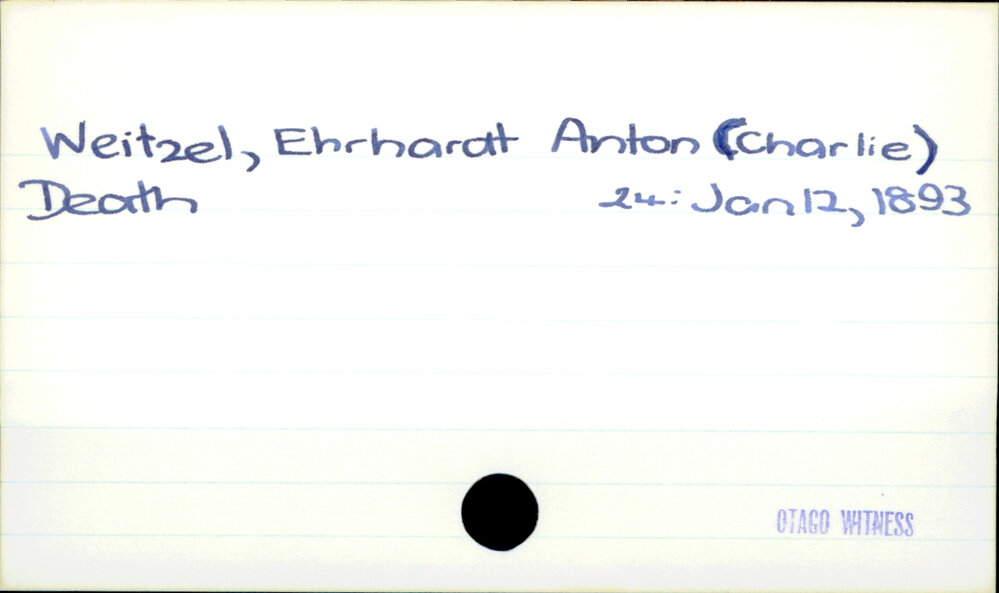 Weitzel, Ehrhardt Anton (Charlie)
Death 24: Jan 12, 1893
OTAGO WITNESS